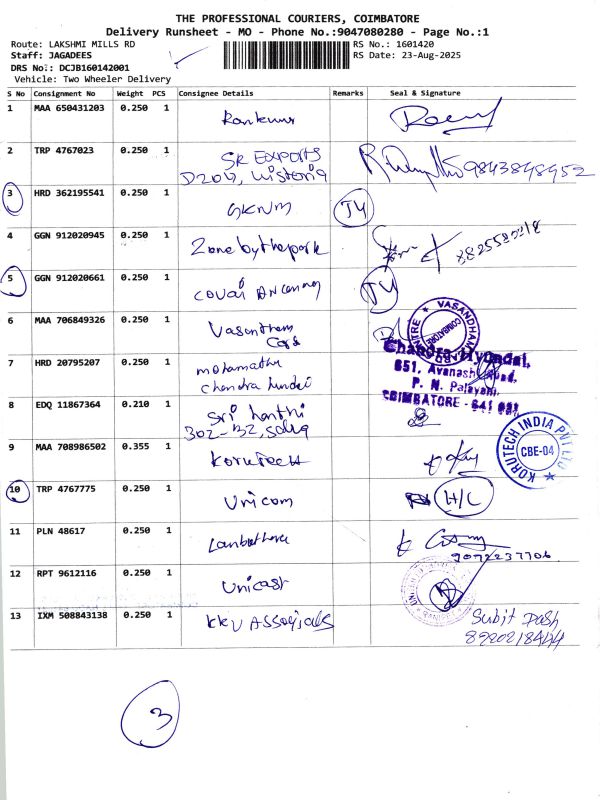 THE PROFESSIONAL COURIERS, COIMBATORE
Delivery Runsheet - MO - Phone No.:9047080280 - Page No.:1
Route: LAKSHMI MILLS RD
RS No.: 1601420
Staff: JAGADEES
RS Date: 23-Aug-2025
DRS No.: DCJB160142001
Vehicle: Two Wheeler Delivery
S No Consignment No Weight PCS Consignee Details Remarks Seal & Signature
1 MAA 650431203 0.250 1
2 TRP 4767023 0.250 1 SR EXPORTS
D204, Wisteria 9843848952
3 HRD 362195541 0.250 1 GKNM
4 GGN 912020945 0.250 1 Zone by the park
5 GGN 912020661 0.250 1
6 MAA 706849326 0.250 1 Vasantham
VASANDHAM
COIMBATORE
Chandra Hyundai,
651, Avanashi Road,
P. N. Palayam,
COIMBATORE - 641 037
7 HRD 20795207 0.250 1
8 EDQ 11867364 0.210 1 Sri
302-B2,
9 MAA 708986502 0.355 1 Korutech
KORUTECH INDIA PVT LTD
CBE-04
10 TRP 4767775 0.250 1 Unicom H/C
11 PLN 48617 0.250 1
12 RPT 9612116 0.250 1 Unicast
13 IXM 508843138 0.250 1 KKV Associates
Subit Dash
3